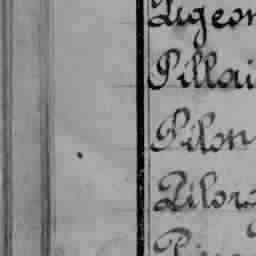 Pigeon
Pillai
Pilon
Piloro